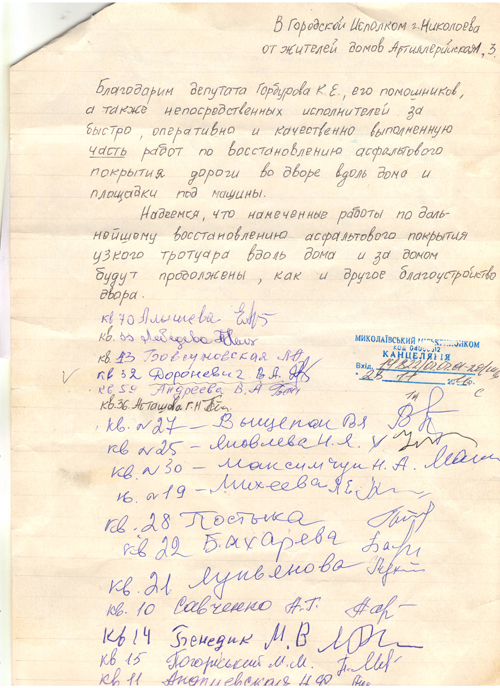 В Городской Исполком г. Николаева
от жителей домов Артиллерийская 1, 3.
Благодарим депутата Горбурова К.Е., его помошников,
а также непосредственных исполнителей за
быстро, оперативно и качественно выполненную
часть работ по восстановлению асфальтового
покрытия дороги во дворе вдоль дома и
площадки под машины.
Надеемся, что намеченные работы по даль-
нейшему восстановлению асфальтового покрытия
узкого тротуара вдоль дома и за домом
будут продолжены, как и другое благоустройство
двора.
кв 70 Алышева
кв. Лебедева
кв 43 Бовсуновская
МИКОЛАЇВСЬКИЙ МІСЬКВИКОНКОМ
КАНЦЕЛЯРІЯ
Вхід.
кв 32 Дороневич В.А.
кв 54 Андреева В.А
кв. 36 Асташова Г.Н
кв. №27 – Выщепан
кв №25 – Яковлева Н.А.
кв. №30 – Максимчук Н.А.
кв. №19 – Михеева
кв. 28 Постыка
кв 22 Бахарева
кв. 21 Лукьянова
кв. 10 Савченко А.Т.
кв 14 Бенедик М.В
кв 15 Погорський М.М.
кв 11